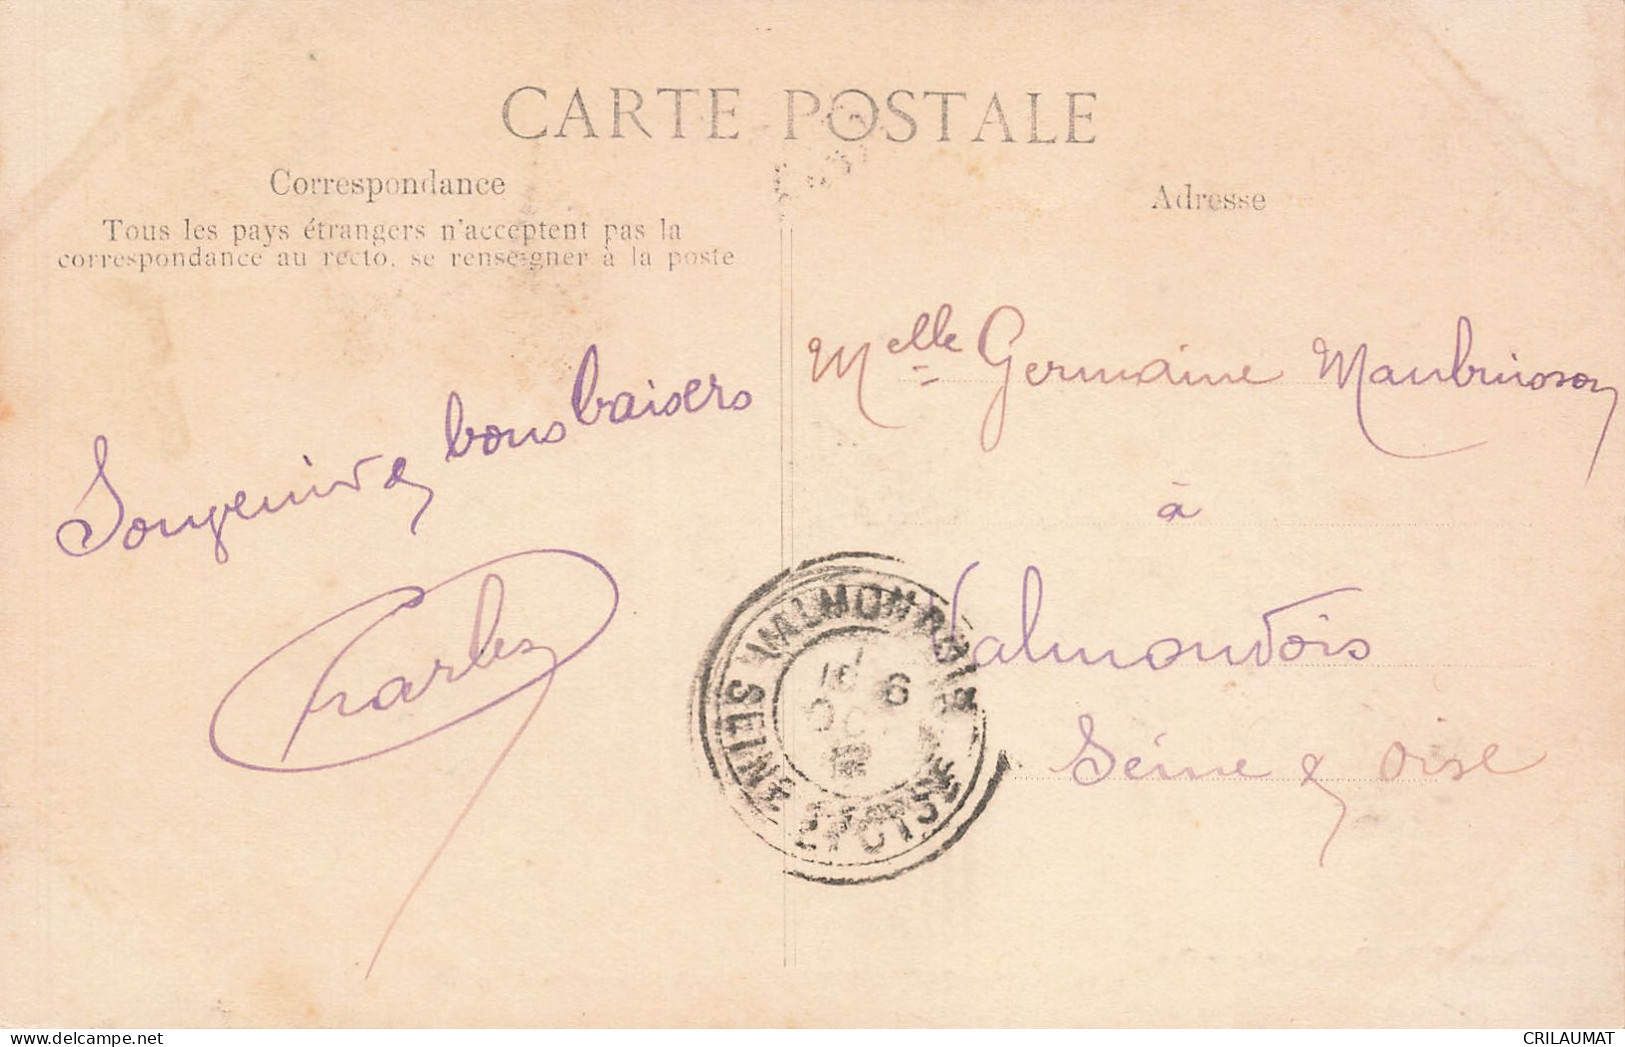 CARTE POSTALE
Correspondance
Tous les pays étrangers n'acceptent pas la
correspondance au recto, se renseigner à la poste
Adresse
Souvenir & bons baisers
Charles
Melle Germaine Maubuisson
à
Valmondois
Seine & Oise
VALMONDOIS
SEINE ET OISE
16 6
CRILAUMAT